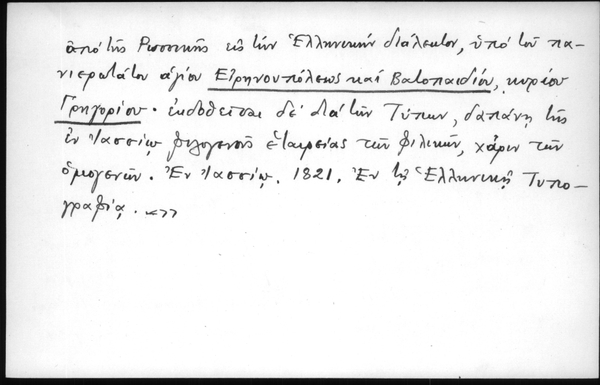 ἀπό τῆς Ρωσσικῆς εἰς τήν Ἑλληνικήν διάλεκτον, ὑπό τοῦ πα-
νιερωτάτου ἁγίου Εἰρηνουπόλεως καί Βατοπαιδίου, κυρίου
Γρηγορίου · ἐκδοθεῖσαι δέ διά τῶν Τύπων, δαπάνῃ τῆς
ἐν Ἰασσίῳ φιλογενοῦς ἑταιρείας τῶν φιλικῶν, χάριν τῶν
ὁμογενῶν. Ἐν Ἰασσίῳ. 1821. Ἐν τῇ Ἑλληνικῇ Τυπο-
γραφίᾳ.